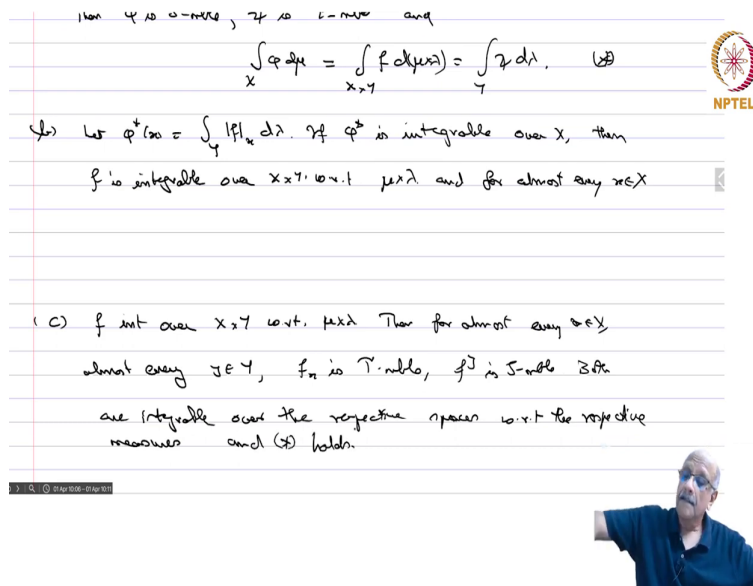 Then φ is S-mble, ψ is T-mble and
∫_X φ dμ = ∫_{X×Y} f d(μ×λ) = ∫_Y ψ dλ. (*)
NPTEL
(b) Let φ*(x) = ∫_Y |f|_x dλ. If φ* is integrable over X, then
f is integrable over X×Y w.r.t μ×λ and for almost every x∈X
(C) f int over X×Y w.r.t. μ×λ Then for almost every x∈X,
almost every y∈Y, f_x is T-mble, f^y is S-mble Both
are integrable over the respective spaces w.r.t the respective
measures and (*) holds.
01 Apr 10:06 - 01 Apr 10:11